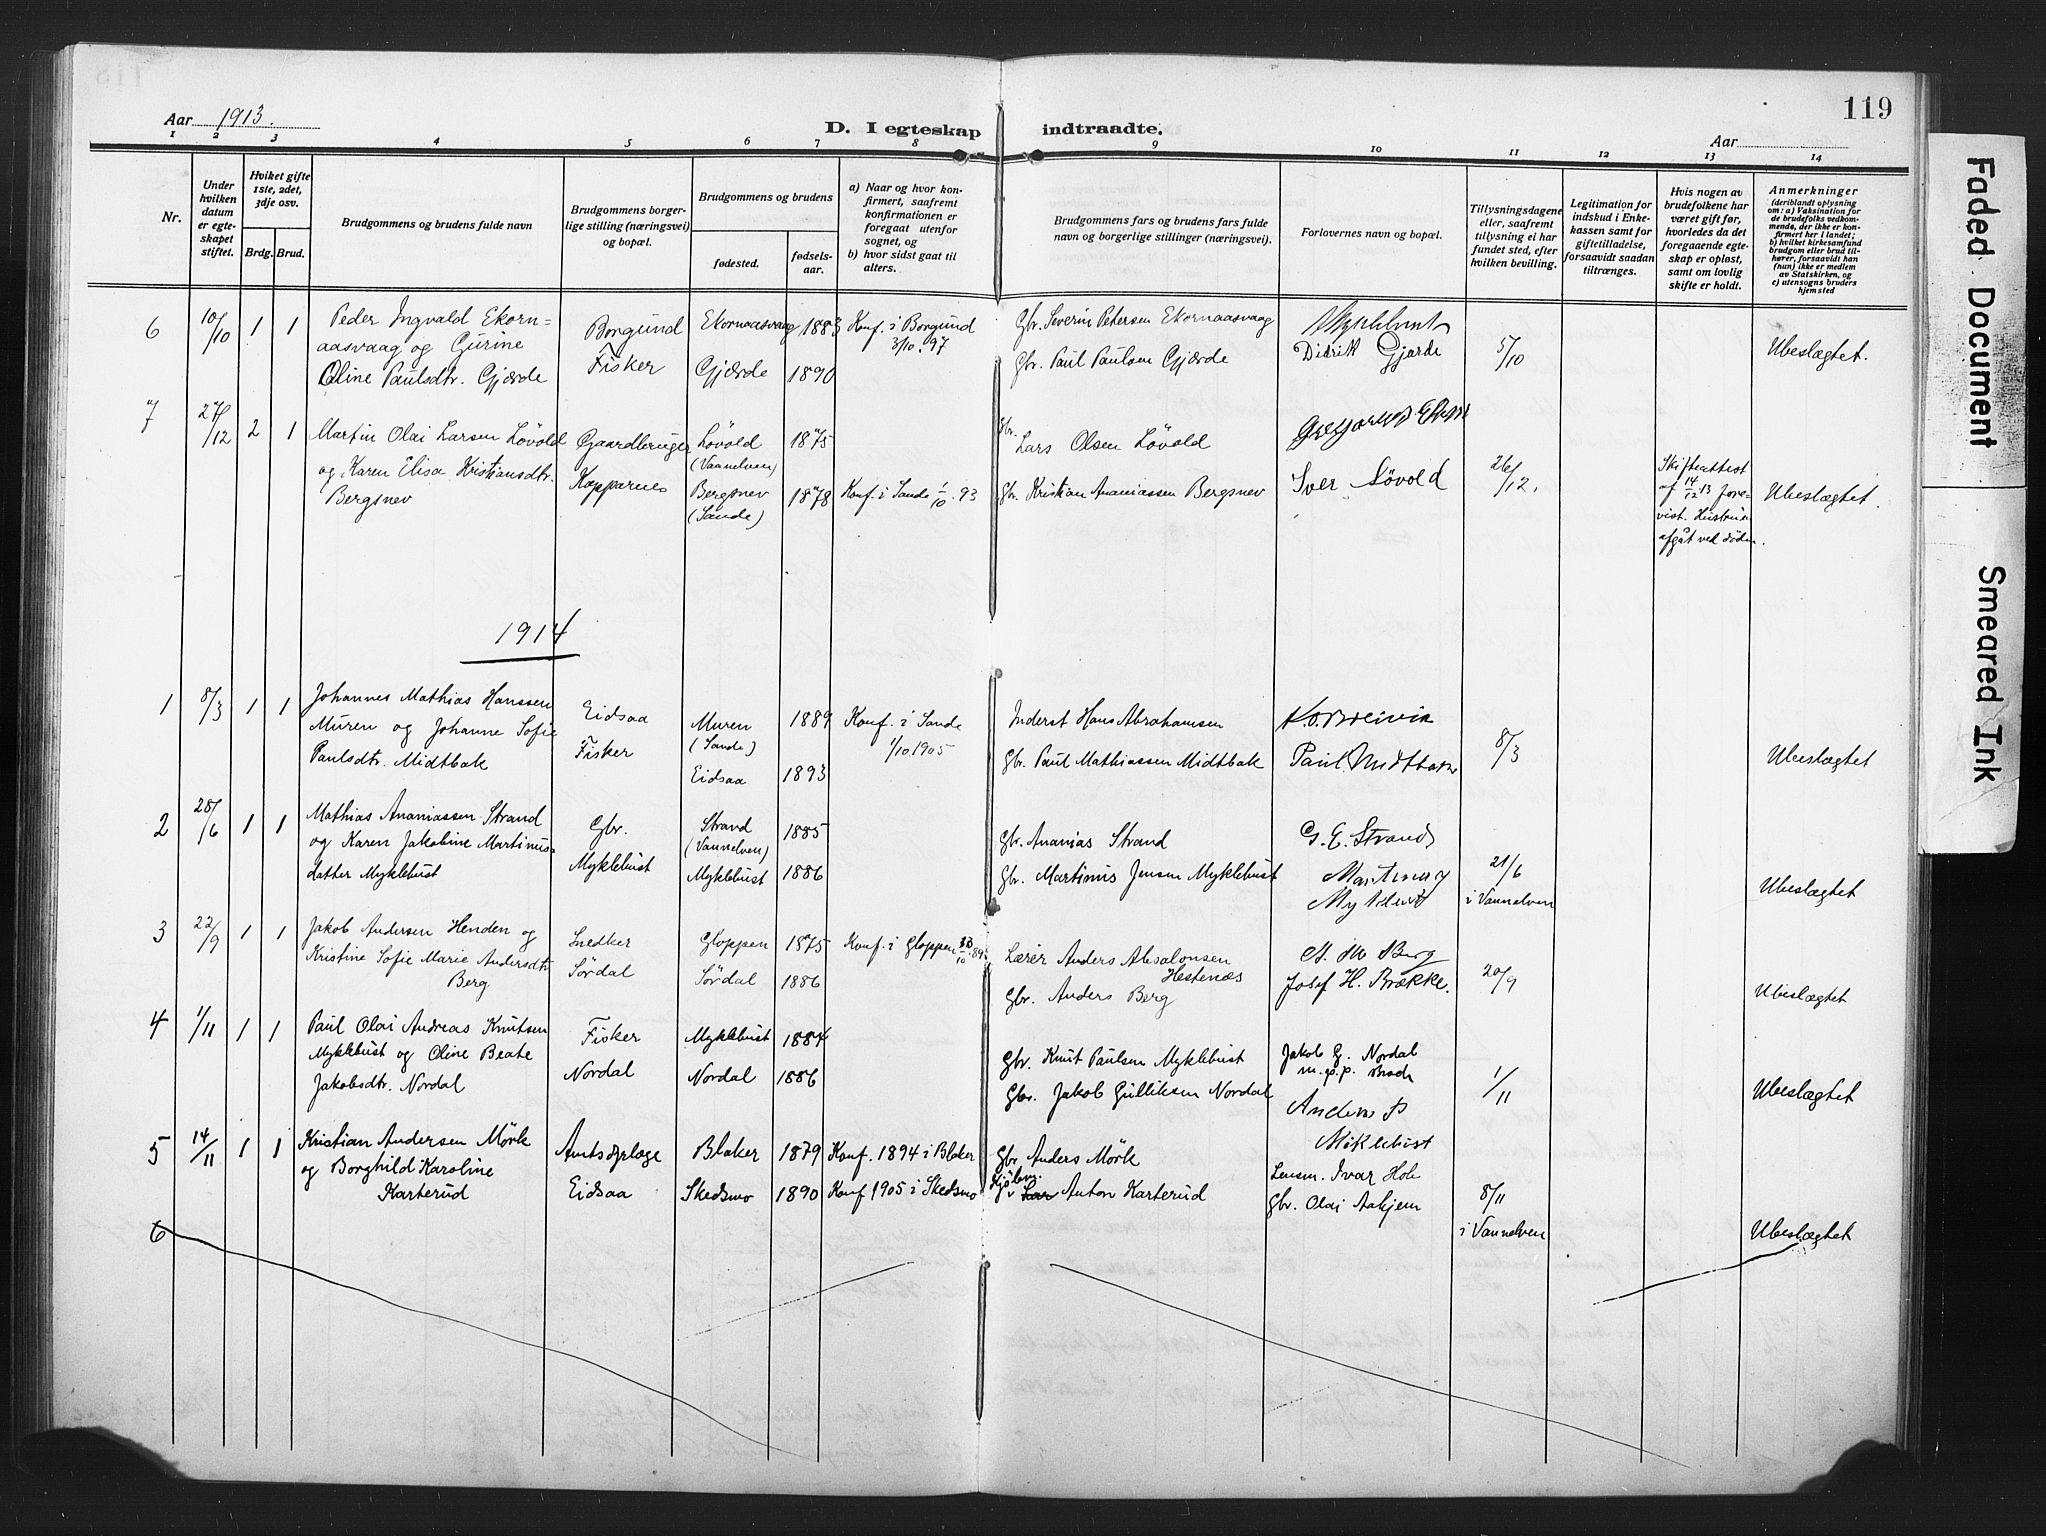 119
Aar 1913.
D. I egteskap indtraadte.
Aar
1 2 3 4 5 6 7 8 9 10 11 12 13 14
Nr.
Under hvilken datum er egteskapet stiftet.
Hviket gifte 1ste, 2det, 3dje osv.
Brdg. Brud.
Brudgommens og brudens fulde navn
Brudgommens borgerlige stilling (næringsvei) og bopæl.
Brudgommens og brudens
fødested.
fødselsaar.
a) Naar og hvor konfirmert, saafremt konfirmationen er foregaat utenfor sognet, og
b) hvor sidst gaat til alters.
Brudgommens fars og brudens fars fulde navn og borgerlige stillinger (næringsvei).
Forlovernes navn og bopæl.
Tillysningsdagene eller, saafremt tillysning ei har fundet sted, efter hvilken bevilling.
Legitimation for indskud i Enkekassen samt for giftetilladelse, forsaavidt saadan tiltrænges.
Hvis nogen av brudefolkene har været gift før, hvorledes da det foregaaende egteskap er opløst, samt om lovlig skifte er holdt.
Anmerkninger
(deriblandt oplysning om: a) Vaksination for de brudefolks vedkommende, der ikke er konfirmert her i landet; b) hvilket kirkesamfund brudgom eller brud tilhører, forsaavidt han (hun) ikke er medlem av Statskirken, og c) utensogns bruders hjemsted
6 10/10 1 1 Peder Ingvald Ekorn=
aasvaag og Gurine
Oline Paulsdtr. Gjærde
Borgund
Fisker
Ekornaasvaag 1883
Gjærde 1890
Konf. i Borgund
3/10. 97
Gbr. Severin Petersen Ekornaasvaag
Gbr. Paul Paulsen Gjærde
Didrik Gjærde
5/10
Ubeslægtet.
7 27/12 2 1 Martin Olai Larsen Løvold
og Karen Elisa Kristiansdtr.
Bergsnev
Gaardbruger
Kopparnes
Løvold 1875
(Vannelven)
Bergsnev 1878
(Sande)
Konf. i Sande 1/10. 93
Gbr.
Lars Olsen Løvold
Gbr. Kristian Ananiassen Bergsnev
Iver Løvold
26/12.
Skifteattest
af 14/12 13 fore=
vist. Hustruen
afgåt ved døden.
Ubeslægtet.
1914
1 8/3 1 1 Johannes Mathias Hanssen
Muren og Johanne Sofie
Paulsdtr. Midtbak
Eidsaa
Fisker
Muren 1889
(Sande)
Eidsaa 1893
Konf. i Sande
1/10 1905
Inderst Hans Abrahamsen
Gbr. Paul Mathiassen Midtbak
K. O. Breivik
Paul Midtbak
8/3
Ubeslægtet
2 28/6 1 1 Mathias Ananiassen Strand
og Karen Jakobine Martinus=
datter Myklebust
Gbr.
Myklebust
Strand 1885
(Vannelven)
Myklebust 1886
Gbr. Ananias Strand
Gbr. Martinus Jensen Myklebust
G. E. Strand
Martinus
Myklebust
21/6
i Vannelven
Ubeslægtet
3 22/9 1 1 Jakob Andersen Henden og
Kristine Sofie Marie Andersdtr.
Berg
Snedker
Sørdal
Gloppen 1875
Sørdal 1886
Konf. i Gloppen
Lærer Anders Absalonsen
Hestenæs
Gbr. Anders Berg
A. M Berg
Josef H. Brække.
20/9
Ubeslægtet
4 1/11 1 1 Paul Olai Andreas Knutsen
Myklebust og Oline Beate
Jakobsdtr. Nordal
Fisker
Nordal
Myklebust 1884
Nordal 1886
Gbr. Knut Paulsen Myklebust
Gbr. Jakob Gulliksen Nordal
Jakob G. Nordal
m. p. p.
Anders P
Miklebust
1/11
Ubeslægtet
5 14/11 1 1 Kristian Andersen Mörk
og Borghild Karoline
Karterud
Amtsdyrlæge
Eidsaa
Blaker 1879
Skedsmo 1890
Konf. 1894 i Blaker
Konf 1905 i Skedsmo
Gbr Anders Mörk
Anton Karterud
Lensm. Ivar Hole
Gbr. Olai Aahjem
8/11
i Vannelven
Ubeslægtet
6
Faded Document
Smeared Ink